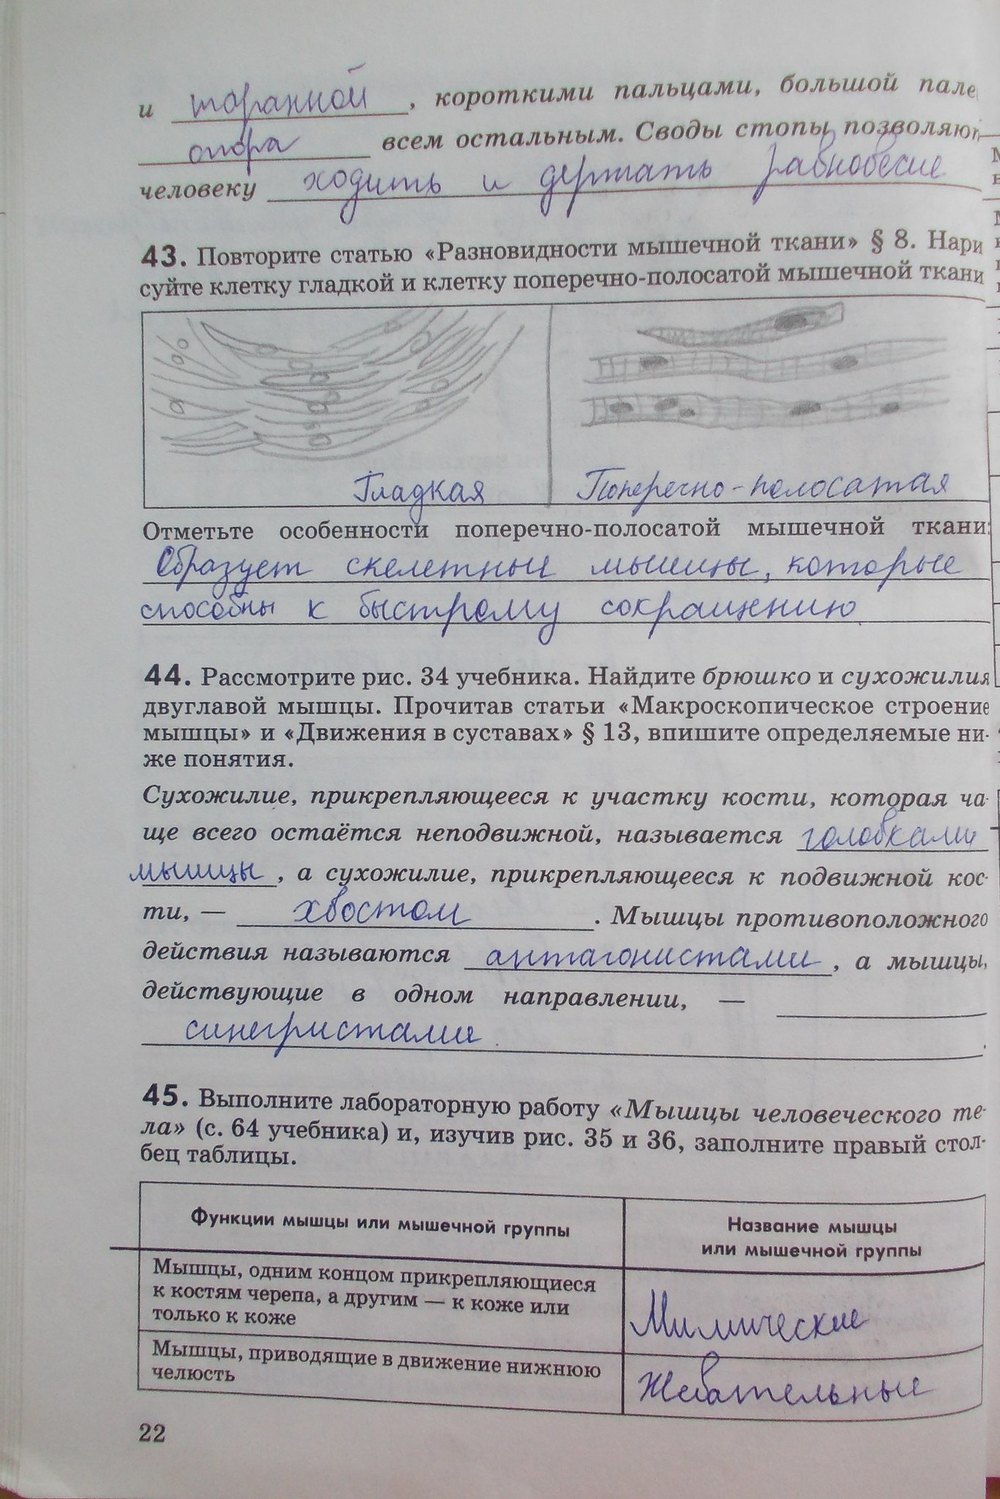 и таранной, короткими пальцами, большой пале
опора всем остальным. Своды стопы позволяют
человеку ходить и держать равновесие
43. Повторите статью «Разновидности мышечной ткани» § 8. Нари
суйте клетку гладкой и клетку поперечно-полосатой мышечной ткани
Гладкая Поперечно-полосатая
Отметьте особенности поперечно-полосатой мышечной ткани:
Образует скелетные мышцы, которые
способны к быстрому сокращению.
44. Рассмотрите рис. 34 учебника. Найдите брюшко и сухожилия
двуглавой мышцы. Прочитав статьи «Макроскопическое строение
мышцы» и «Движения в суставах» § 13, впишите определяемые ни-
же понятия.
Сухожилие, прикрепляющееся к участку кости, которая ча-
ще всего остаётся неподвижной, называется головками
мышцы, а сухожилие, прикрепляющееся к подвижной кос-
ти, — хвостом. Мышцы противоположного
действия называются антагонистами, а мышцы,
действующие в одном направлении, —
синергристами.
45. Выполните лабораторную работу «Мышцы человеческого те-
ла» (с. 64 учебника) и, изучив рис. 35 и 36, заполните правый стол-
бец таблицы.
Функции мышцы или мышечной группы
Название мышцы
или мышечной группы
Мышцы, одним концом прикрепляющиеся
к костям черепа, а другим — к коже или
только к коже
Мимические
Мышцы, приводящие в движение нижнюю
челюсть
Жевательные
22